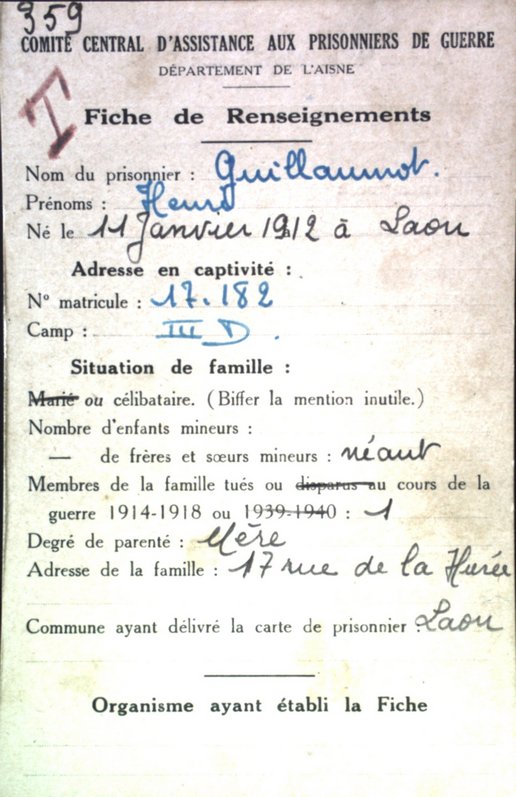 359
COMITÉ CENTRAL D'ASSISTANCE AUX PRISONNIERS DE GUERRE
DÉPARTEMENT DE L'AISNE
I
Fiche de Renseignements
Nom du prisonnier : Guillaumot.
Prénoms : Henri
Né le 11 Janvier 1912 à Laon
Adresse en captivité :
N° matricule : 17.182
Camp : III D.
Situation de famille :
Marié ou célibataire. (Biffer la mention inutile.)
Nombre d'enfants mineurs :
— de frères et sœurs mineurs : néant
Membres de la famille tués ou disparus au cours de la
guerre 1914-1918 ou 1939-1940 : 1
Degré de parenté : Mère
Adresse de la famille : 17 rue de la Hurée
Commune ayant délivré la carte de prisonnier : Laon
Organisme ayant établi la Fiche